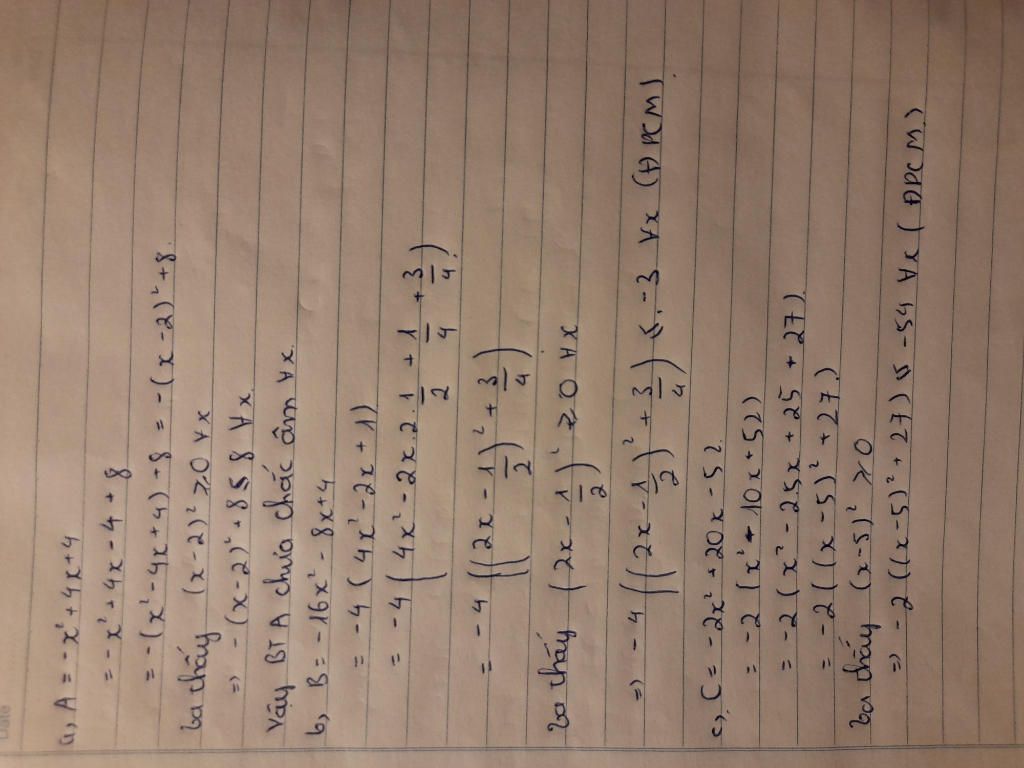 a, A = -x² + 4x + 4
= -x² + 4x - 4 + 8
= -(x² - 4x + 4) + 8 = -(x - 2)² + 8.
Ta thấy (x - 2)² ≥ 0 ∀x
=> -(x - 2)² + 8 ≤ 8 ∀x.
Vậy BT A chưa chắc âm ∀x.
b, B = -16x² - 8x + 4
= -4 (4x² - 2x + 1)
= -4 (4x² - 2x.2.1/2 + 1/4 + 3/4)
= -4 ((2x - 1/2)² + 3/4)
Ta thấy (2x - 1/2)² ≥ 0 ∀x
=> -4 ((2x - 1/2)² + 3/4) ≤ -3 ∀x (ĐPCM).
c, C = -2x² + 20x - 52
= -2 (x² - 10x + 52)
= -2 (x² - 25x + 25 + 27)
= -2 ((x - 5)² + 27)
Ta thấy (x - 5)² ≥ 0
=> -2 ((x - 5)² + 27) ≤ -54 ∀x (ĐPCM.)